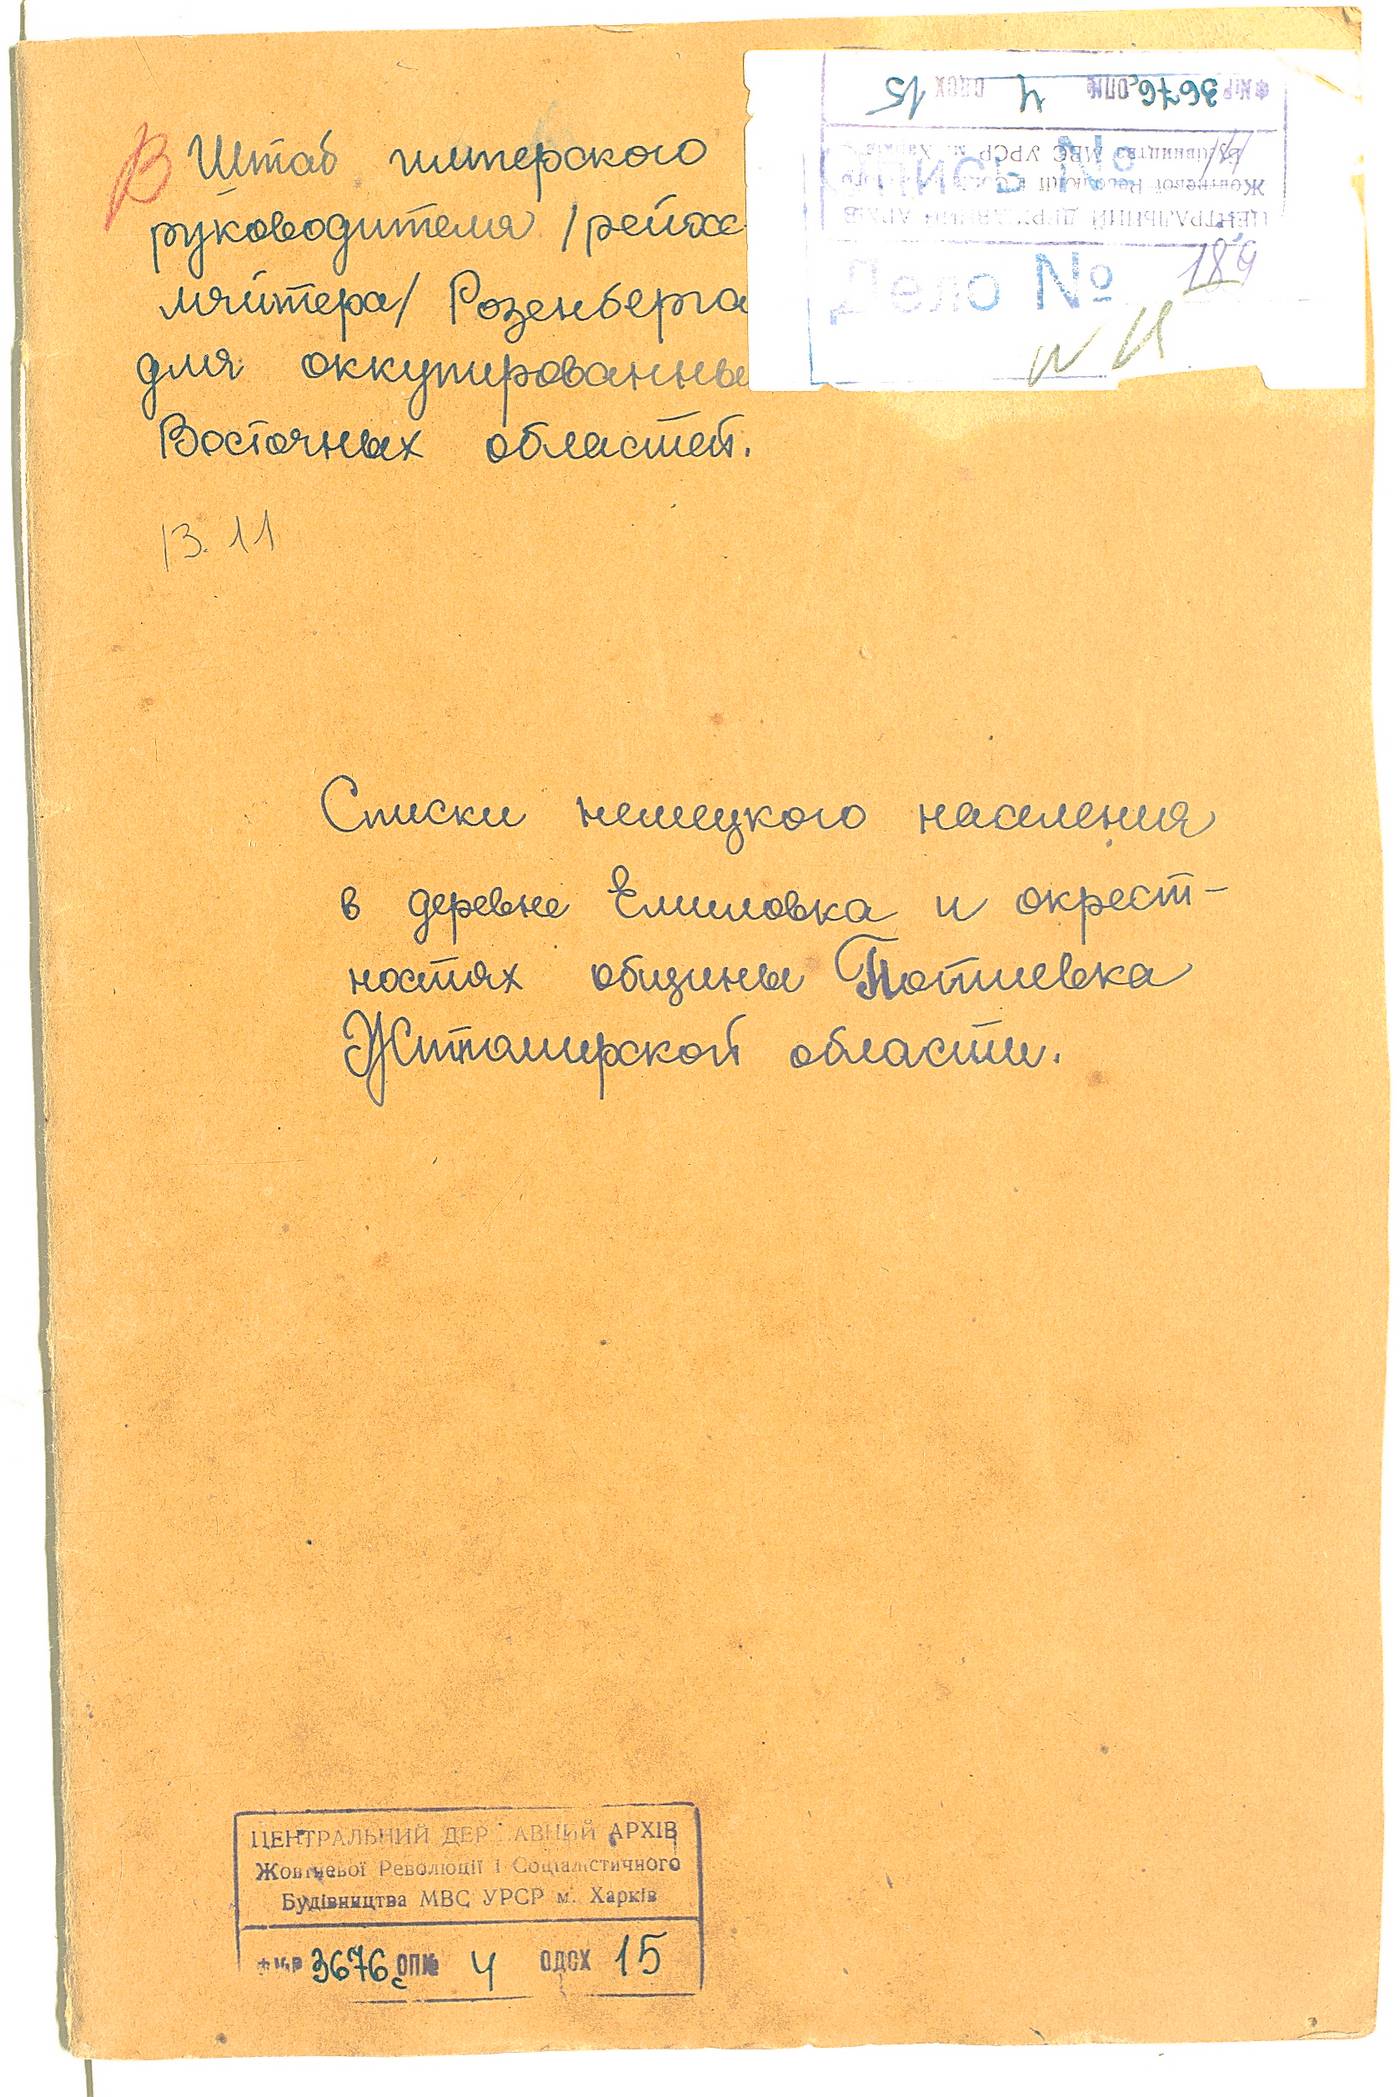 В Штаб имперского
руководителя /рейхс
ляйтера/ Розенберга
для оккупированны
Восточных областей.
13.11
3676с ОП№ 4 ОДСХ 15
ЦЕНТРАЛЬНИЙ ДЕРЖАВНИЙ АРХІВ
Жовтневої Революції і
Будівництва МВС УРСР м. Харків
Опись №
Дело № 189
Списки немецкого населения
в деревне Емиловка и окрест-
ностях общины Потиевка
Житомирской области.
ЦЕНТРАЛЬНИЙ ДЕР АВНИЙ АРХІВ
Жовтневої Революції і Соціалістичного
Будівництва МВС УРСР м. Харків
Ф №Р 3676с ОП№ 4 ОДСХ 15